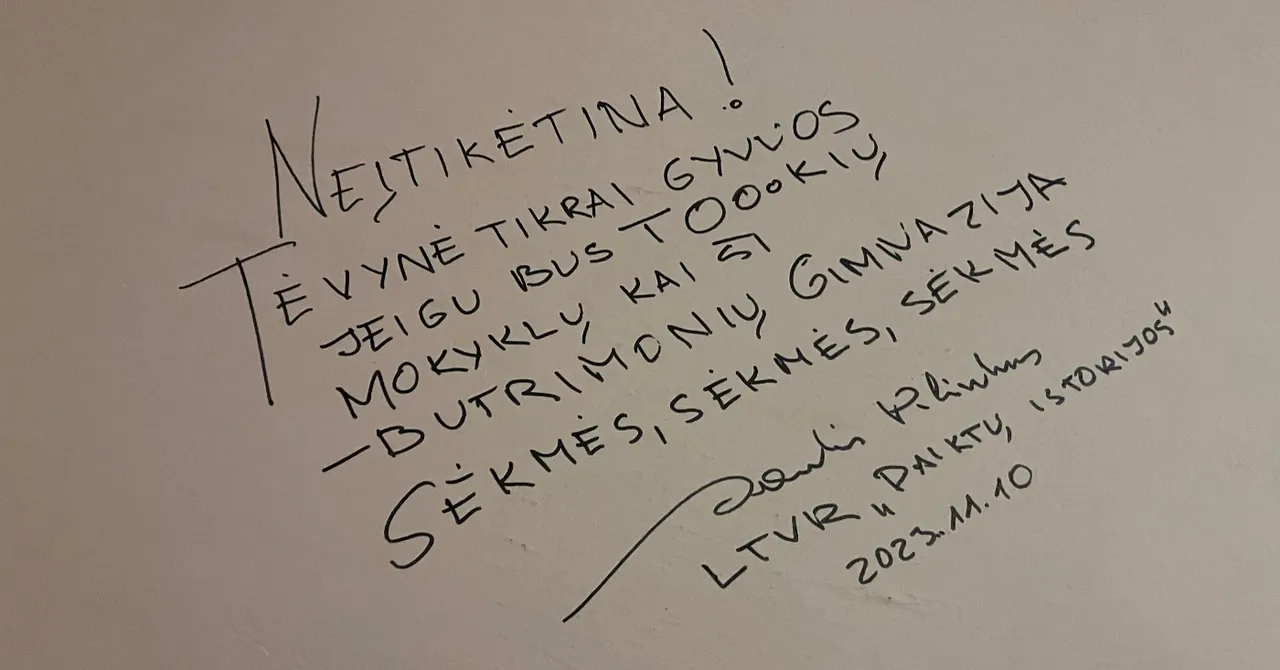 NEĮTIKĖTINA!
TĖVYNĖ TIKRAI GYVUOS
JEIGU BUS TOOOKIŲ
MOKYKLŲ KAI ŠI
– BUTRIMONIŲ GIMNAZIJA
SĖKMĖS, SĖKMĖS, SĖKMĖS
Saulis Pilinkus
LTVR „DAIKTŲ ISTORIJOS“
2023.11.10